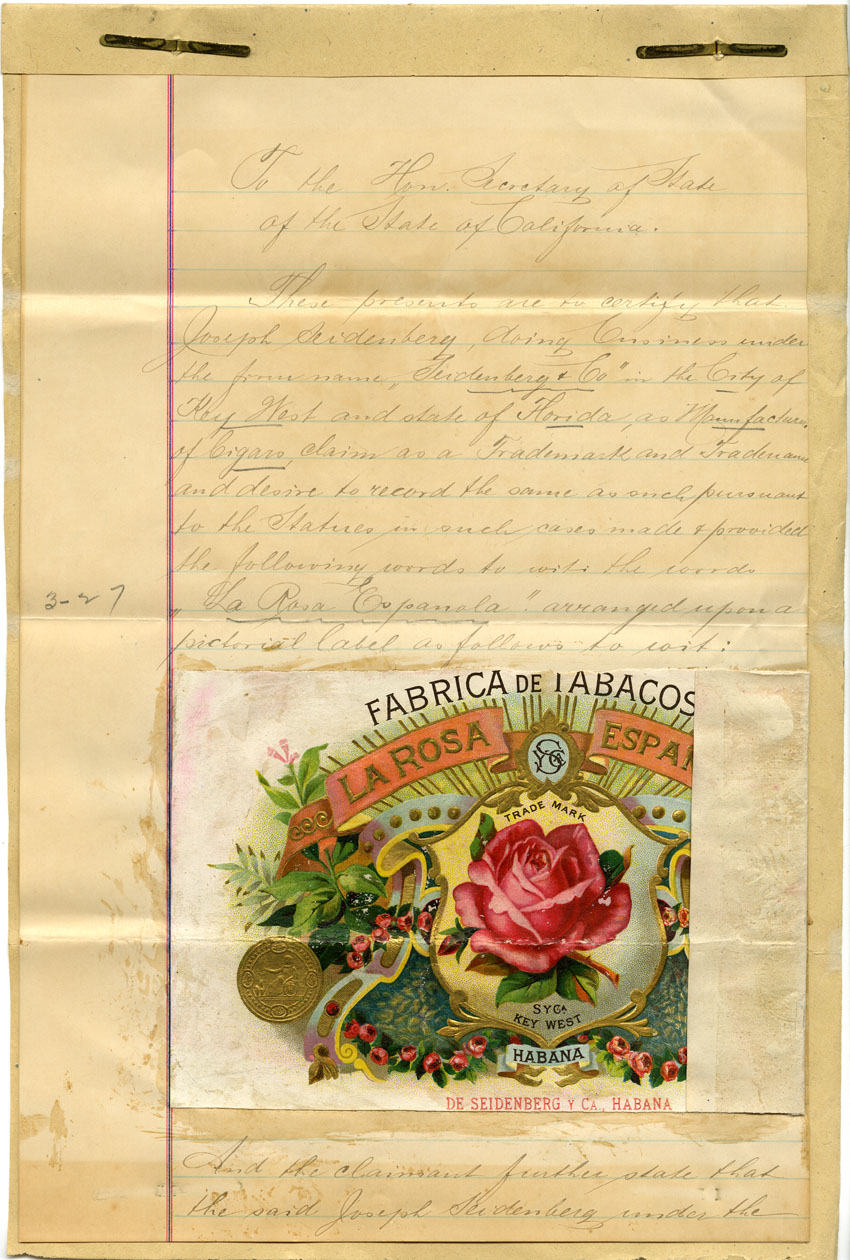 To the Hon. Secretary of State
of the State of California.
These presents are to certify that
Joseph Seidenberg, doing business under
the firm name „Seidenberg & Co" in the City of
Key West and state of Florida, as Manufacturer
of Cigars, claim as a Trademark and Tradename
and desire to record the same as such pursuant
to the Statues in such cases made & provided
the following words to wit: the words
3-27
„La Rosa Espanola". arranged upon a
pictorial label as follows to wit:
FABRICA DE TABACOS
LA ROSA
ESPAN
TRADE MARK
S Y Ca
KEY WEST
HABANA
DE SEIDENBERG Y CA., HABANA
And the claimant further state that
the said Joseph Seidenberg under the